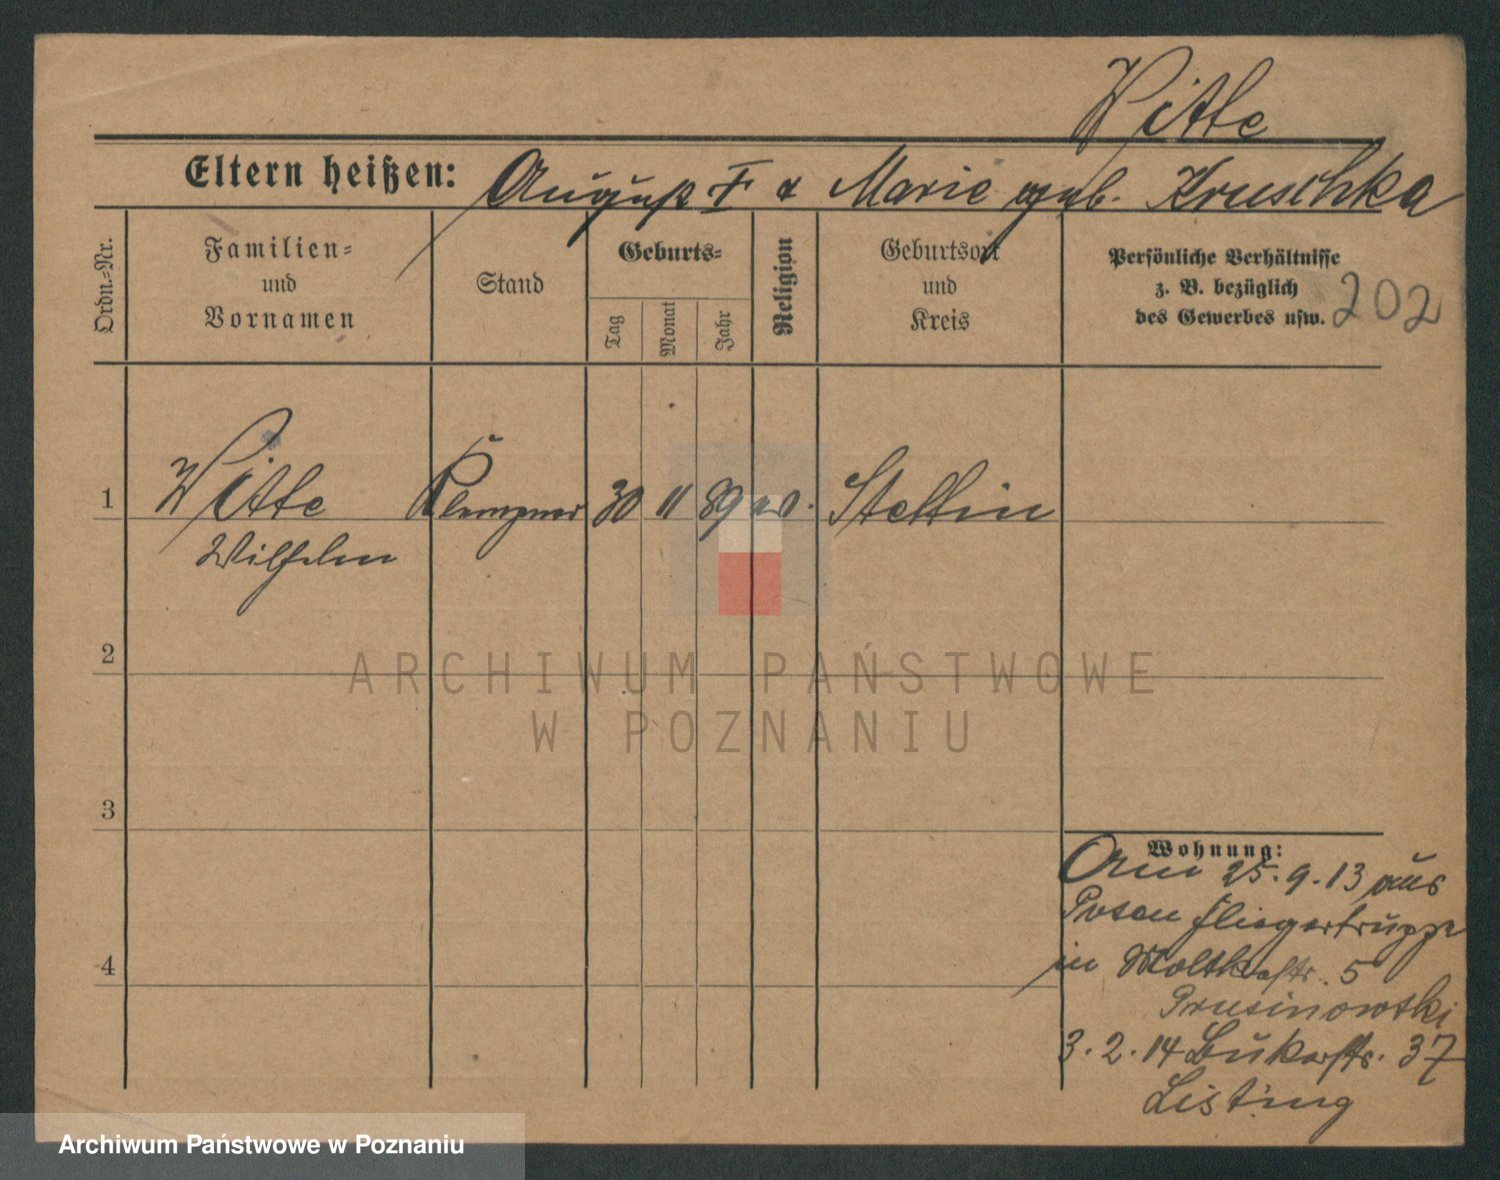 Witte
Eltern heißen: August † & Marie geb. Kruschka
Ordn.=Nr.
Familien=
und
Vornamen
Stand
Geburts=
Tag
Monat
Jahr
Religion
Geburtsort
und
Kreis
Persönliche Verhältnisse
z. B. bezüglich
des Gewerbes usw.
202
1 Witte Klempner 30 11 89 ev. Stettin
Wilhelm
2
3
4
Wohnung:
Am 25.9.13 aus
Posen Fliegertruppe
in Moltkestr. 5
Prusinowski
3.2.14 Bukerstr. 37
Listing
ARCHIWUM PAŃSTWOWE
W POZNANIU
Archiwum Państwowe w Poznaniu